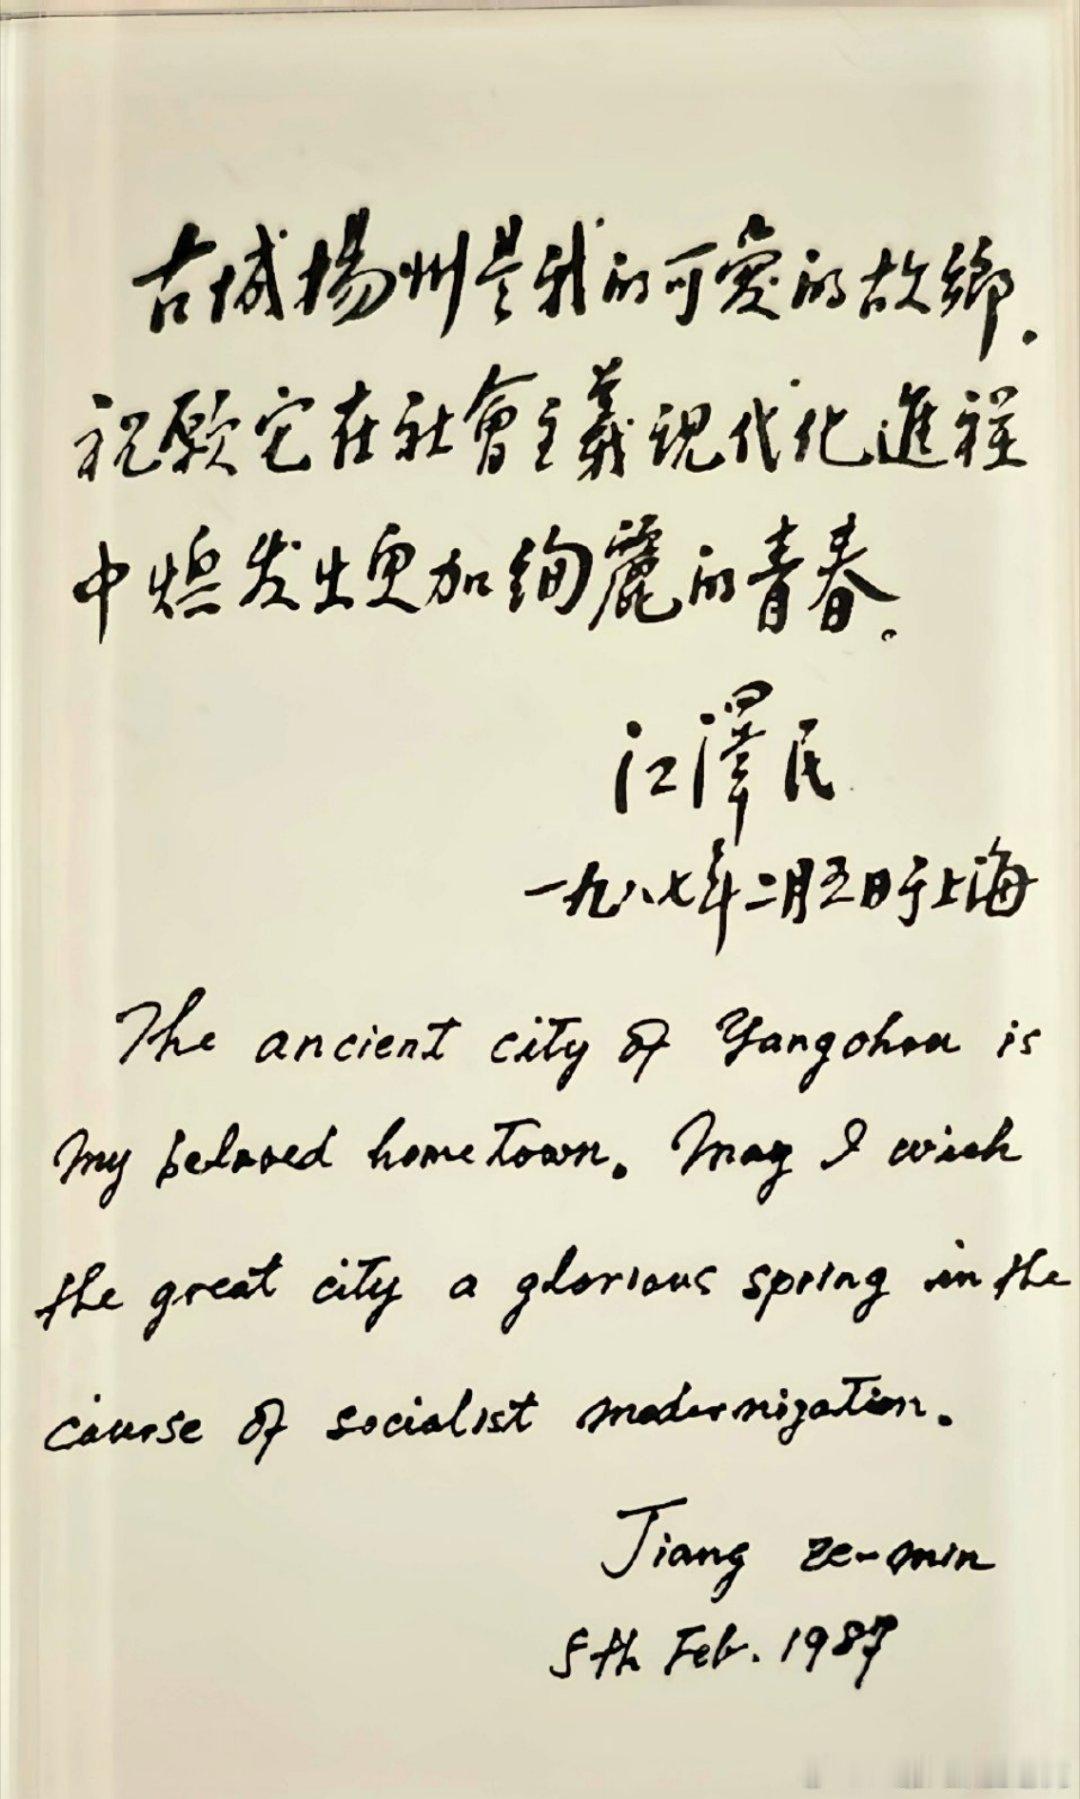 古城揚州是我的可愛的故鄉.
祝願它在社會主義現代化進程
中煥发出更加絢麗的青春.
江澤民
一九八七年二月五日于上海
The ancient city of Yangzhou is
my beloved hometown. May I wish
the great city a glorious spring in the
course of socialist modernization.
Jiang Ze-min
5th Feb. 1987